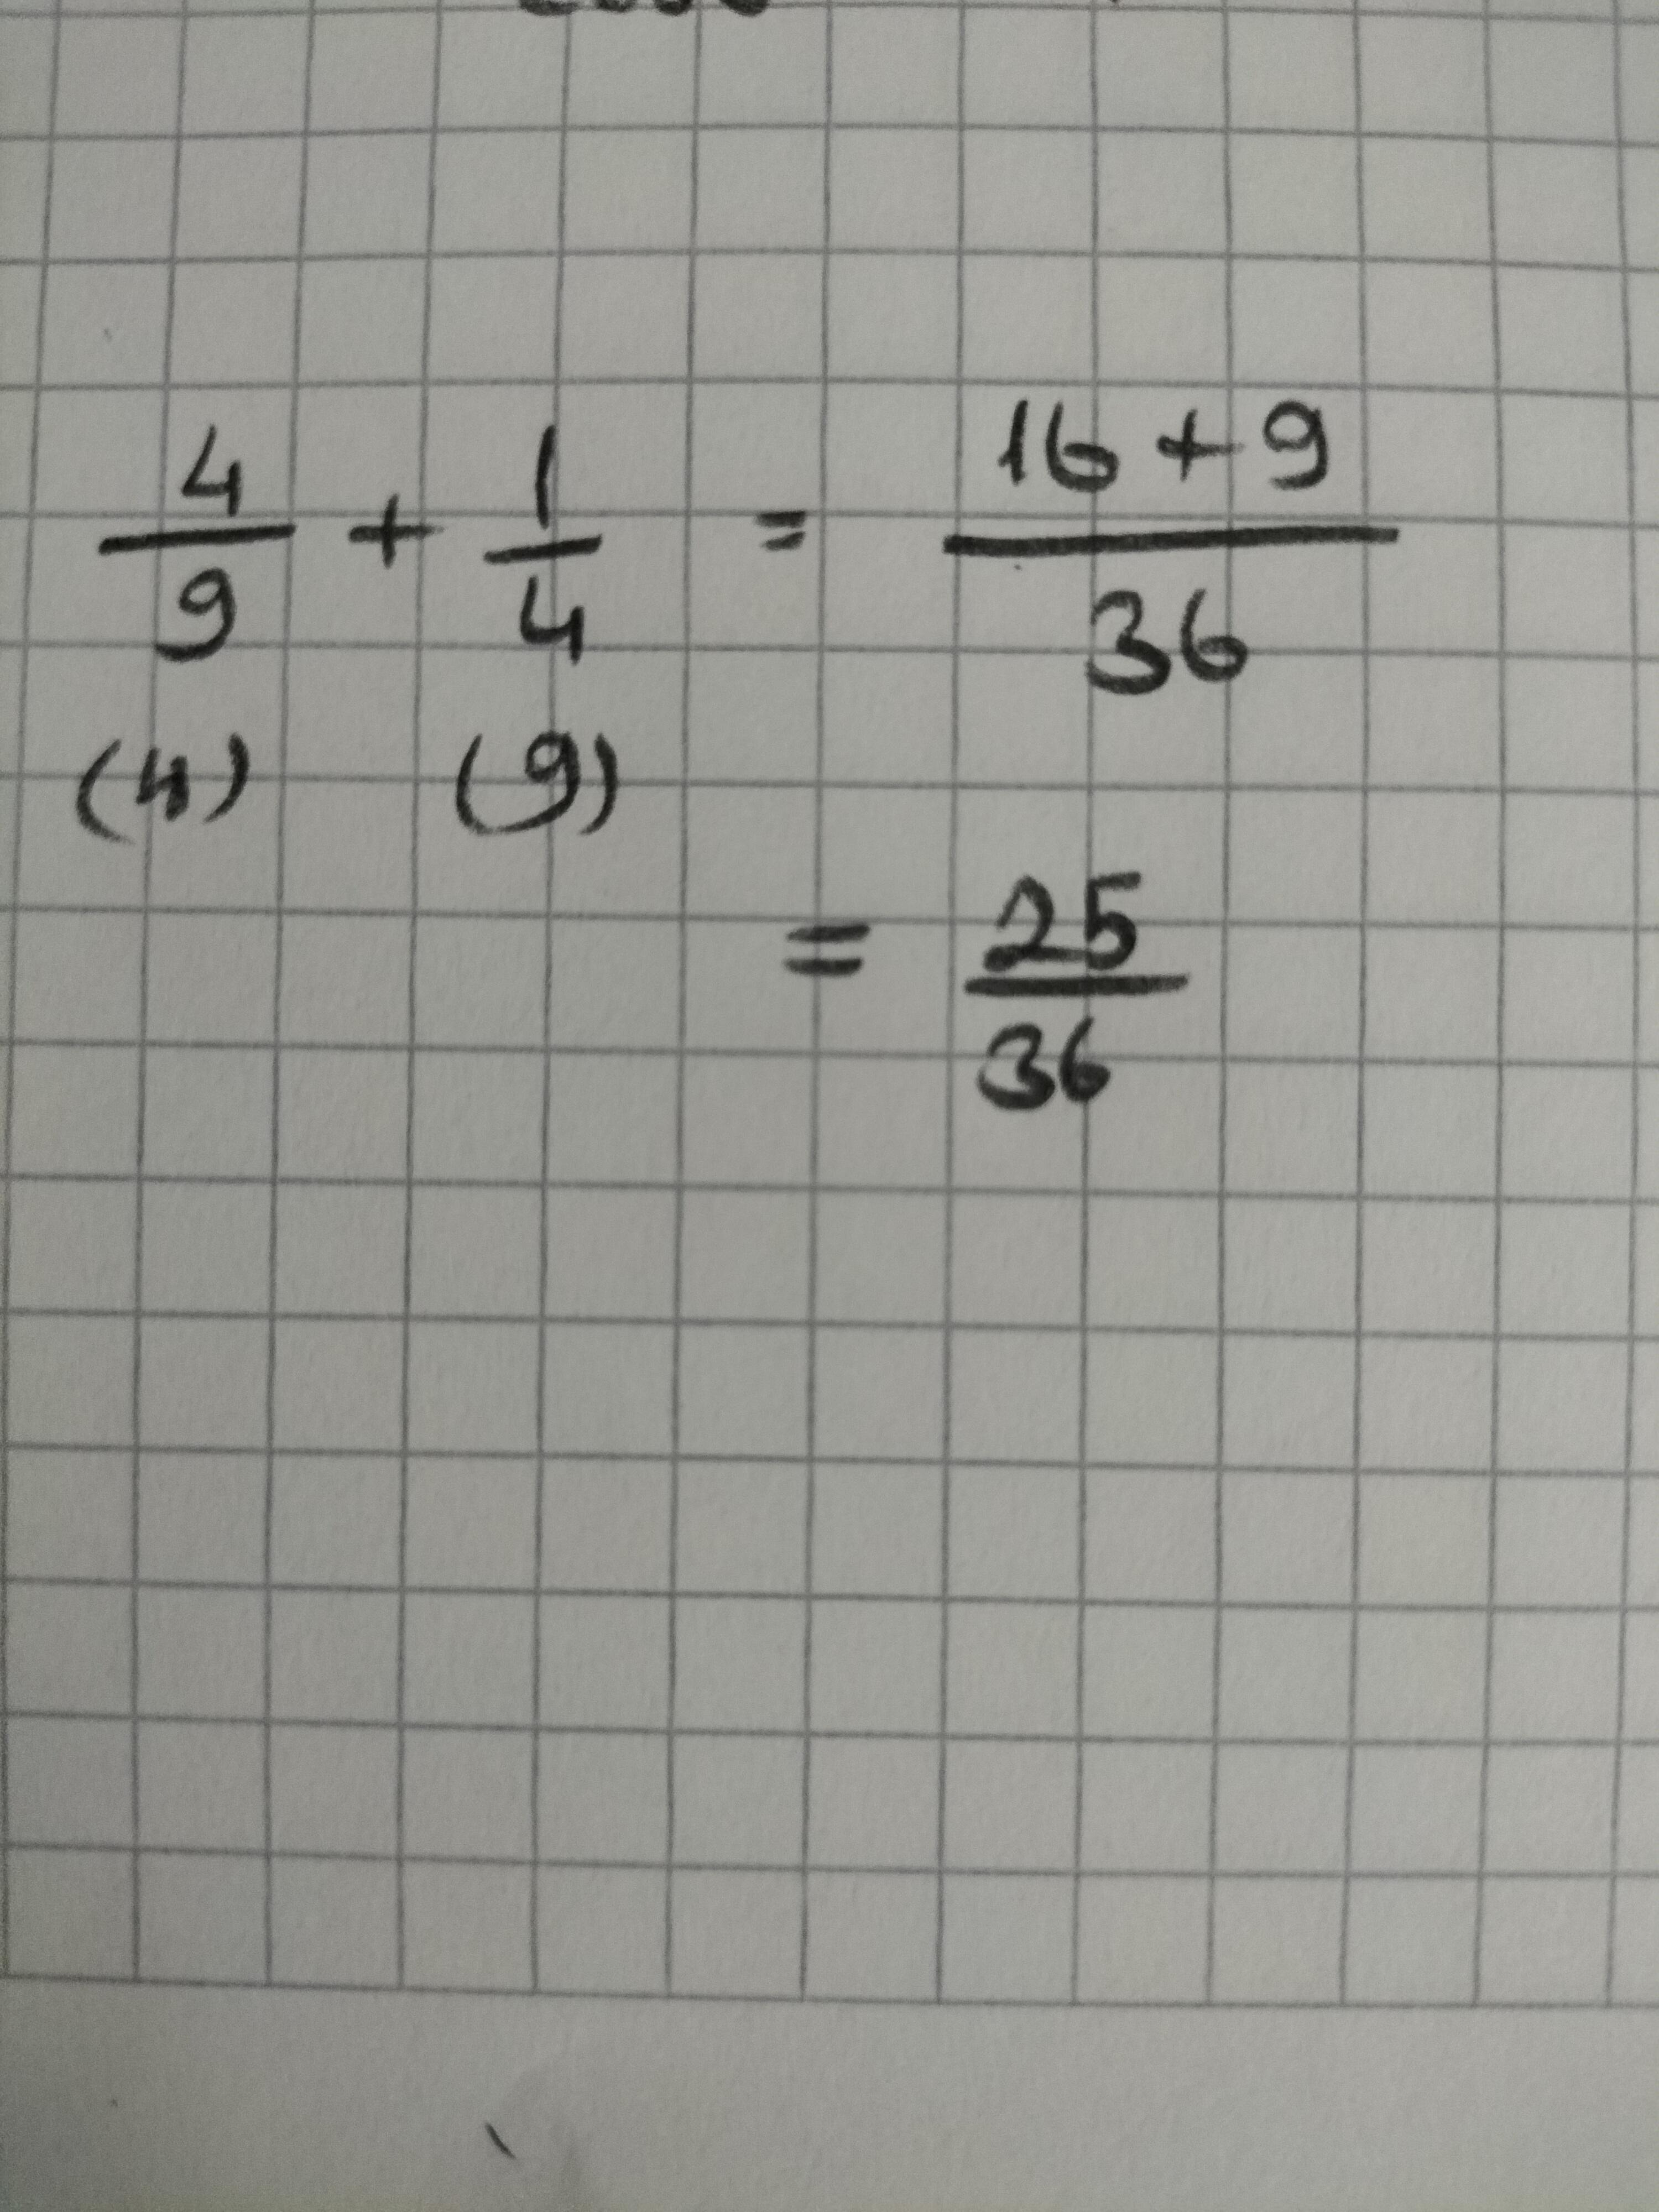 4/9 + 1/4 = (16 + 9)/36
(4) (9)
= 25/36